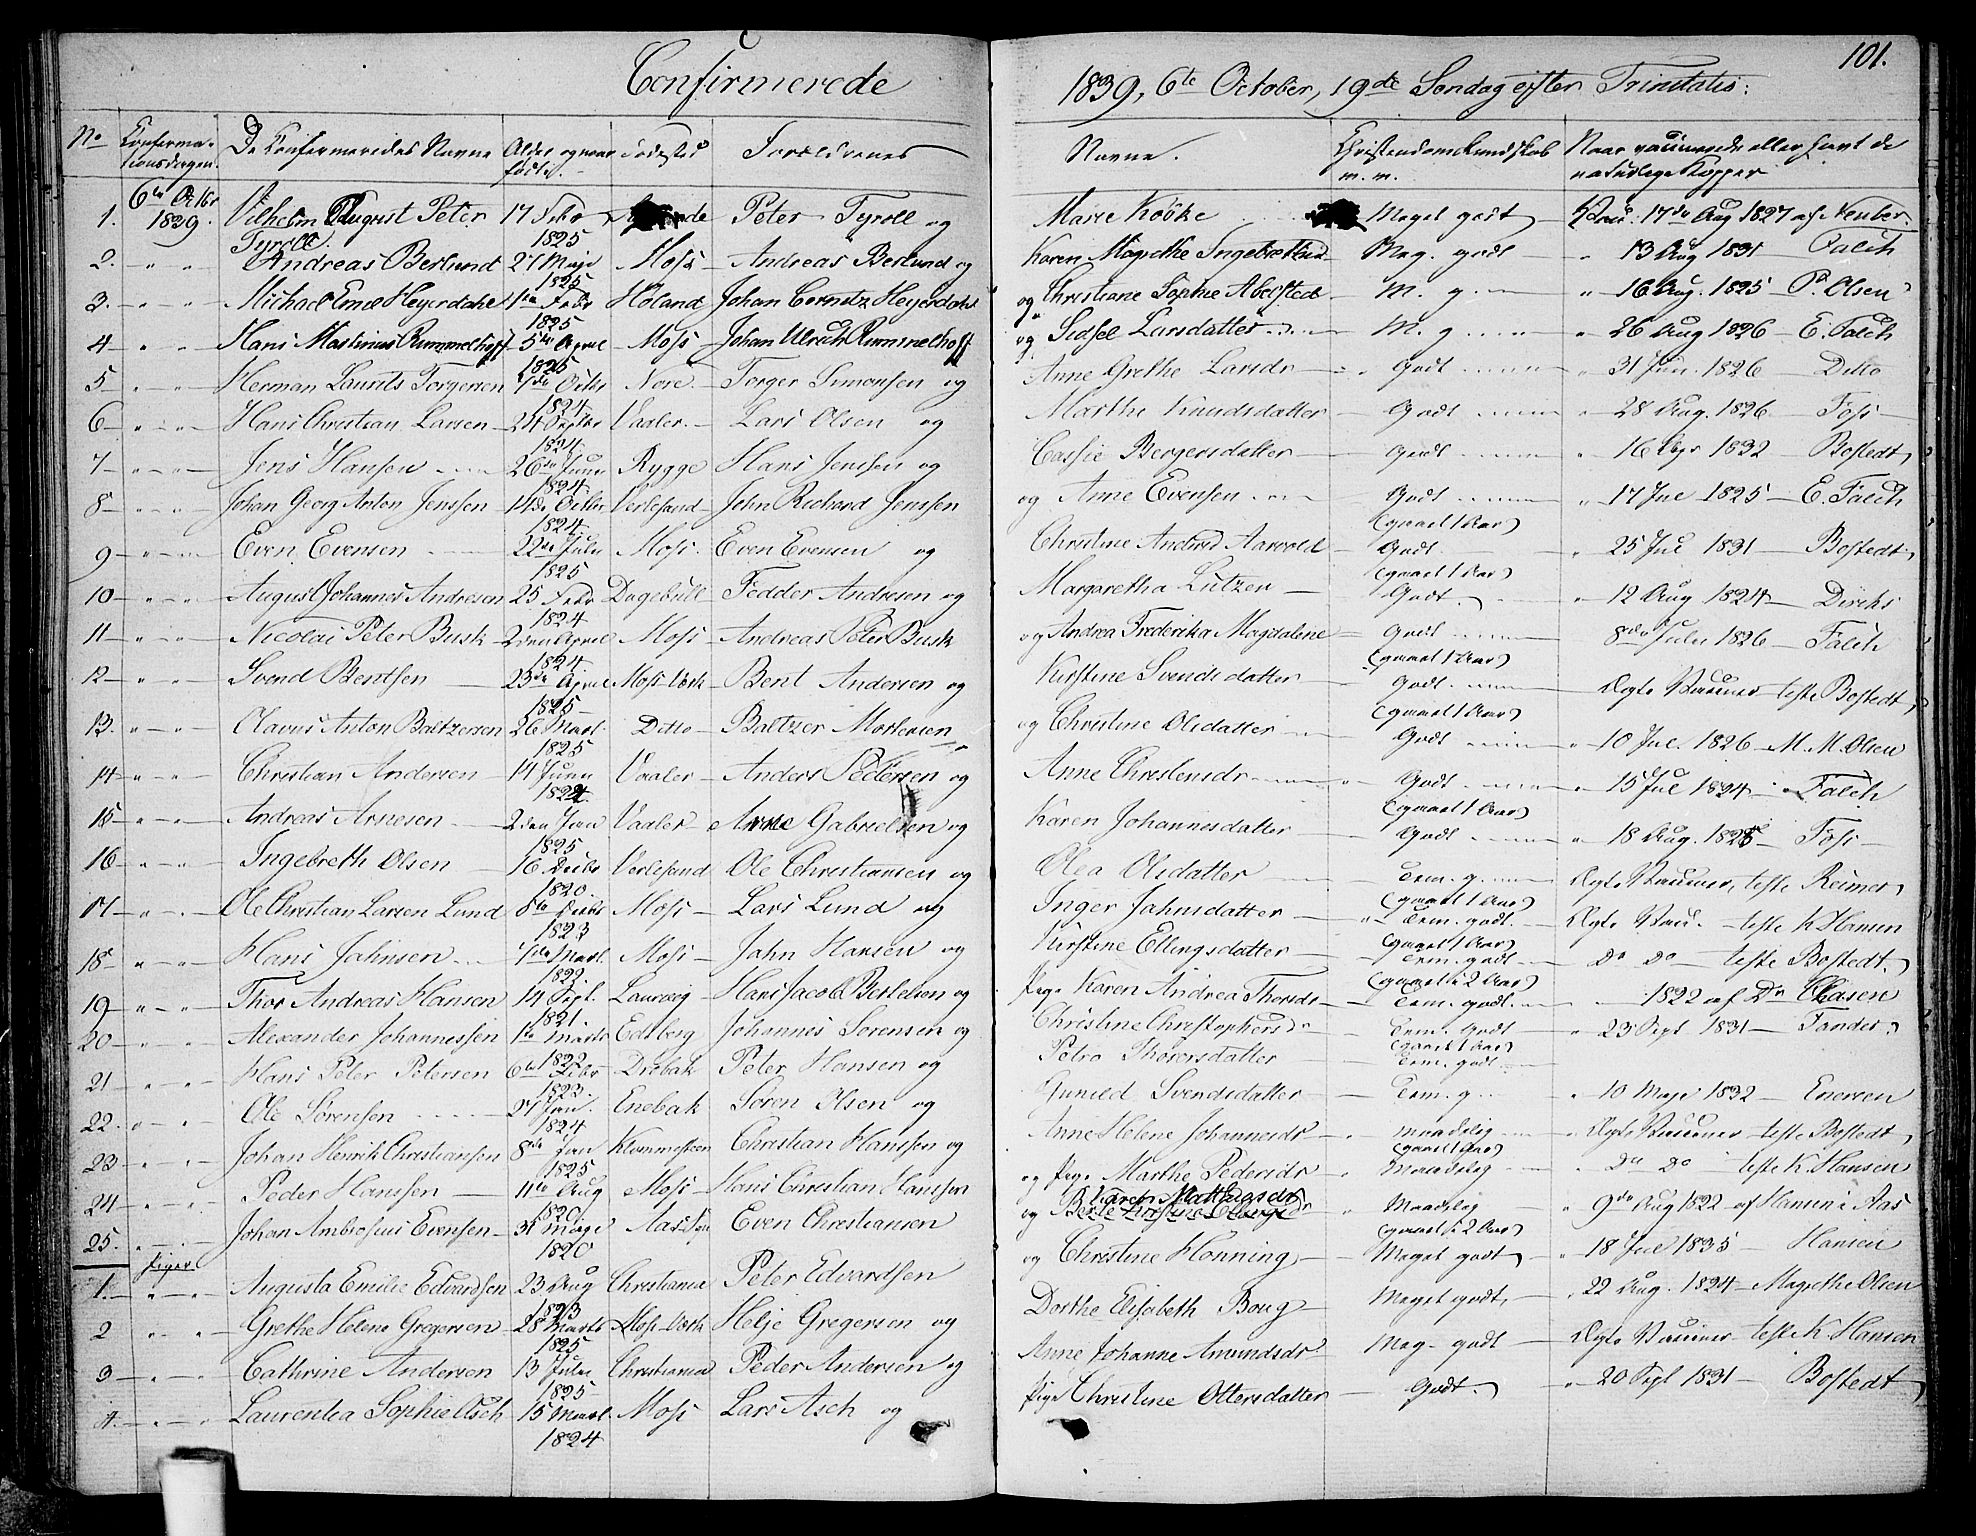 101.
Confirmerede 1839, 6te October, 19de Søndag efter Trinitatis:
No Confirmationsdagen. De Confirmeredes Navne Alder og naar født. Fødested Forældrenes Navne. Christendomskundskab m. m. Naar vaccinerede eller havt de naturlige Kopper
6te Octbr
1. 1839. Vilhelm August Peter Tyroll 17 Febr 1825 Peter Tyroll og Marie Kööke Meget godt Vac. 17de Aug 1827 af Neuber.
2. " " Andreas Berlund 27 Maje 1825 Moss Andreas Berlund og Karen Magrethe Meg. godt " 13 Aug 1831 Falch
3. " " Michael Emil Heyerdahl 1te Febr 1825 Høland Johan Cornelz Heyerdahl og Christiane Sophie Abelsted M. g. " 16 Aug. 1825 P. Olsen
4 " " Hans Martinius Rummelhoff 5te April 1825 Moss Johan Ulrich Rummelhoff og Sidsel Larsdatter M. g. " 26 Aug 1826 E. Falch
5 " " Herman Laurits Torgersen 7de Octbr 1824 Nore Torger Simonsen og Anne Grethe Larsdr Godt " 31 Jun. 1826 Ditto
6 " " Hans Christian Larsen 24 1824 Vaaler Lars Olsen og Marthe Knudsdatter Godt " 28 Aug. 1826 Foss
7 " " Jens Hansen 26de Juni 1824 Rygge Hans Jensen og Cassie Bergersdatter Godt " 16 1832 Bostedt
8 " " Johan Georg Anton Jenssen 14de Octbr 1824 Verlesand John Richard Jenssen og Anne Evensen Godt " 17 Jul 1825 E. Falch
9 " " Even Evensen 22de Julii 1825 Moss Even Evensen og Christine Aarvold (gaaet 1 Aar) Godt " 25 Jul 1831 Bostedt
10 " " August Johannes Andresen 25 Febr 1824 Dagebüll Fedder Andresen og Margaretha Lützen (gaaet 1 Aar) Godt " 12 Aug 1824 Dircks
11 " " Nicolai Peter Busk 2den April 1824 Moss Andreas Peter Busk og Andrea Frederika Magdalene Godt " 8de Julii 1826 Falch
12 " " Svend Bentsen 23de April 1825 Moss Værk Bent Andersen og Kirstine Svendsdatter (gaaet 1 Aar) Godt teste Bostedt
13. " " Olavus Anton Baltzersen 26 Mart. 1825 Ditto Baltzer Mortensen og Christine Olsdatter (gaaet 1 Aar) Godt " 10 Jul. 1826 M. M. Olsen
14 " " Christian Andersen 14 Juni 1824 Vaaler Anders Pedersen og Anne Christensdr Godt " 15 Jul 1824 Falch
15 " " Andreas Arnesen 2den Jan 1825 Vaaler Arne Gabrielsen og Karen Johannesdatter (gaaet 1 Aar) Godt " 18 Aug. 1825 Foss
16 " " Ingebreth Olsen 16 1820. Verlesand Ole Christiansen og Olea Olsdatter Tem. g. teste Reimer
17 " " Ole Christian Larsen Lund 8de 1823 Moss Lars Lund og Inger Jahnsdatter (gaaet 1 Aar) Tem. godt teste K Hansen
18 " " Hans Jahnsen 7de Mart. 1822. Moss Jahn Hansen og Kirstine Ellingsdatter (gaaet 1 Aar) Tem. godt Do Do teste Bostedt.
19 " " Thor Andreas Hansen 14 Sept. 1821 Laurvig Hans Jacob Bertelsen og Pige Karen Andrea Thorsdr (gaaet i 2 Aar) Tem. godt 1822 af Dr
20 " " Alexander Johannessen 1te Marts 1822 Edsberg Johannes Sørensen og Christine Christophersdr Tem. Godt " 23 Sept 1831 Tandet
21 " " Hans Peter Petersen 6te Febr 1823. Drøbak Peter Hansen og Petro Thorersdatter (gaaet 1 Aar) Tem. godt
22. " " Ole Sørensen 27 Jan. 1824 Enebak Søren Olsen og Gunild Svendsdatter Tem. g. " 10 Maje 1832 Enersen
23 " " Johan Henrik Christiansen 8de Jan 1825 Klommesteen Christian Hanssen og Anne Helene Johannesdr maadelig teste Bostedt
24 " " Peder Hanssen 11te Aug 1820 Moss Hans Christian Hanssen og Pige Marthe Pedersdr (gaaet 1 Aar) Maadelig Do Do teste K. Hansen
25. " " Johan Ambrosius Evensen 31 Maje 1820 Aas Even Christiansen og Karen Matthiasdr Maadelig " 9de Aug 1822 af Hansen i Aas
Piger.
1. " " Augusta Emilie Edvardsen 23 Aug 1823 Christiania Peter Edvardsen og Christine Honning (gaaet i 2 Aar) Meget godt " 18 Jul 1835 Hansen
2 " " Grethe Helene Gregersen 28 Marts 1825 Moss Værk Helje Gregersen og Dorthe Elisabeth Boug Meget godt " 22 Aug. 1824 Magrethe Olsen
3 " " Cathrine Andersen 13 Julii 1825 Christiania Peder Andersen og Anne Johanne Amundsdr Meg. godt teste K Hansen
4. " " Laurentia Sophie Asch 15 Mart. 1824 Moss Lars Asch og Pige Christine Ottersdatter Godt. " 20 Sept 1831 Bostedt